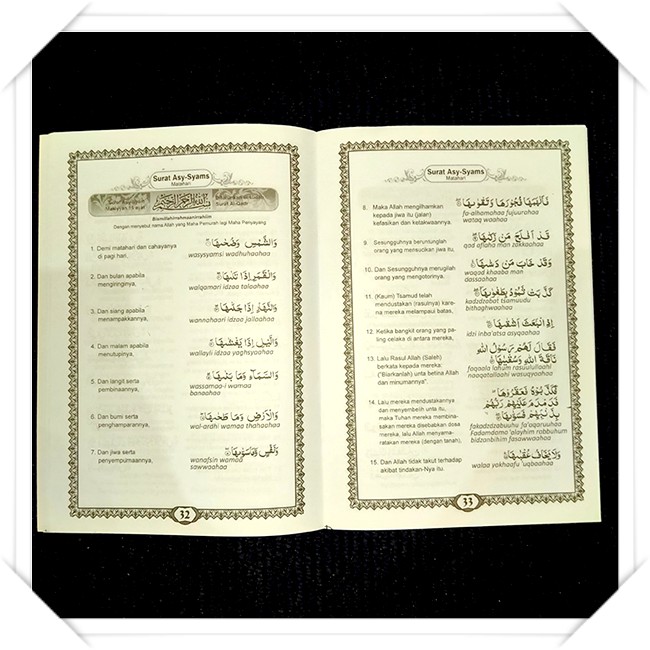 Surat Asy-Syams
Matahari
بِسْمِ اللهِ الرَّحْمٰنِ الرَّحِيْمِ
Bismillahirrahmaanirrahiim
Dengan menyebut nama Allah yang Maha Pemurah lagi Maha Penyayang
1. Demi matahari dan cahayanya
di pagi hari,
وَالشَّمْسِ وَضُحٰىهَا
wasysyamsi wadhuhaahaa
2. Dan bulan apabila
mengiringinya,
وَالْقَمَرِ اِذَا تَلٰىهَا
walqamari idzaa talaahaa
3. Dan siang apabila
menampakkannya,
وَالنَّهَارِ اِذَا جَلّٰىهَا
wannahaari idzaa jallaahaa
4. Dan malam apabila
menutupinya,
وَالَّيْلِ اِذَا يَغْشٰىهَا
wallayli idzaa yaghsyaahaa
5. Dan langit serta
pembinaannya,
وَالسَّمَآءِ وَمَا بَنٰىهَا
wassamaa-i wamaa
banaahaa
6. Dan bumi serta
penghamparannya,
وَالْاَرْضِ وَمَا طَحٰىهَا
wal-ardhi wamaa thahaahaa
7. Dan jiwa serta
penyempurnaannya,
وَنَفْسٍ وَّمَا سَوّٰىهَا
wanafsin wamaa
sawwaahaa
32
Surat Asy-Syams
Matahari
8. Maka Allah mengilhamkan
kepada jiwa itu (jalan)
kefasikan dan ketakwaannya.
فَاَلْهَمَهَا فُجُوْرَهَا وَتَقْوٰىهَا
fa-alhamahaa fujuurahaa
wataq waahaa
9. Sesungguhnya beruntunglah
orang yang mensucikan jiwa itu,
قَدْ اَفْلَحَ مَنْ زَكّٰىهَا
qad aflaha man zakkaahaa
10. Dan Sesungguhnya merugilah
orang yang mengotorinya.
وَقَدْ خَابَ مَنْ دَسّٰىهَا
waqad khaaba man
dassaahaa
11. (Kaum) Tsamud telah
mendustakan (rasulnya) kare-
na mereka melampaui batas,
كَذَّبَتْ ثَمُوْدُ بِطَغْوٰىهَا
kadzdzabat tsamuudu
bithaghwaahaa
12. Ketika bangkit orang yang pa-
ling celaka di antara mereka,
اِذِ انْۢبَعَثَ اَشْقٰىهَا
idzi inba'atsa asyqaahaa
13. Lalu Rasul Allah (Saleh)
berkata kepada mereka:
("Biarkanlah) unta betina Allah
dan minumannya".
فَقَالَ لَهُمْ رَسُوْلُ اللهِ
نَاقَةَ اللهِ وَسُقْيٰهَا
faqaala lahum rasuulullaahi
naaqatallaahi wasuqyaahaa
14. Lalu mereka mendustakannya
dan menyembelih unta itu,
maka Tuhan mereka membina-
sakan mereka disebabkan dosa
mereka, lalu Allah menyama-
ratakan mereka (dengan tanah),
فَكَذَّبُوْهُ فَعَقَرُوْهَا
فَدَمْدَمَ عَلَيْهِمْ رَبُّهُمْ
بِذَنْۢبِهِمْ فَسَوّٰىهَا
fakadzdzabuuhu fa'aqaruuhaa
fadamdama 'alayhim robbuhum
bidzanbihim fasawwaahaa
15. Dan Allah tidak takut terhadap
akibat tindakan-Nya itu.
وَلَا يَخَافُ عُقْبٰهَا
walaa yokhaafu 'uqbaahaa
33